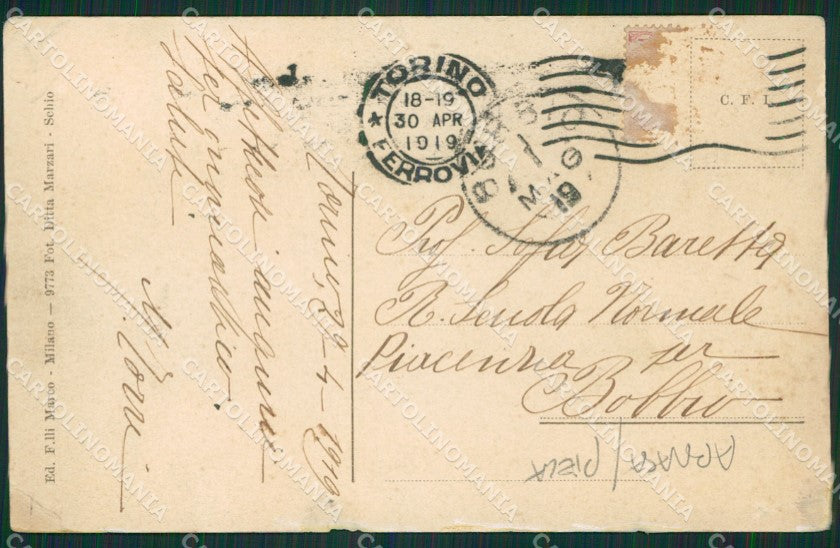 Torino, 29-4-1919
Auguri
per onomastico.
Saluti
Ed. F.lli Marco - Milano — 9773 Fot. Ditta Marzari - Schio
TORINO
18-19
30 APR
1919
FERROVIA
BOBBIO
1
MAG
19
C. F. I.
Prof. Sofia Baretta
R. Scuola Normale
Piacenza per
Bobbio
CARTOLINOMANIA